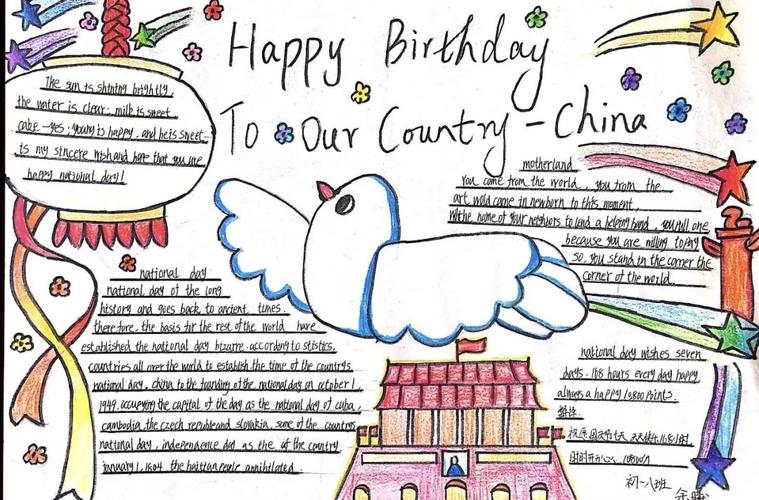 Happy Birthday
To Our Country - China
The sun is shining brightly,
the water is clear, milk is sweet
cake -yes, young is happy, and he is sweet-
is my sincere wish and hope that you are
happy national day!
motherland
You come from the world, you from the
art, wold came in newborn to this moment,
the name of your neighbors to lend a helping hand, you
because you are
so, you stand in the corner the
corner of the world
national day
national day of the long
history and goes back to ancient times.
therefore, the basis for the rest of the world have
established the national day bizarre, according to
countries all over the world to establish the time of the countrys
national day, china to the founding of the national day on october 1,
1949, occupying the capital of the day as the national day of cuba,
cambodia, the czech republic and slovakia, some of the countries
national day, independence day as the of the country
january 1, 1804, the
national day wishes seven
days, 168 hours every day happy,
always a happy 10800 points.
初一八班